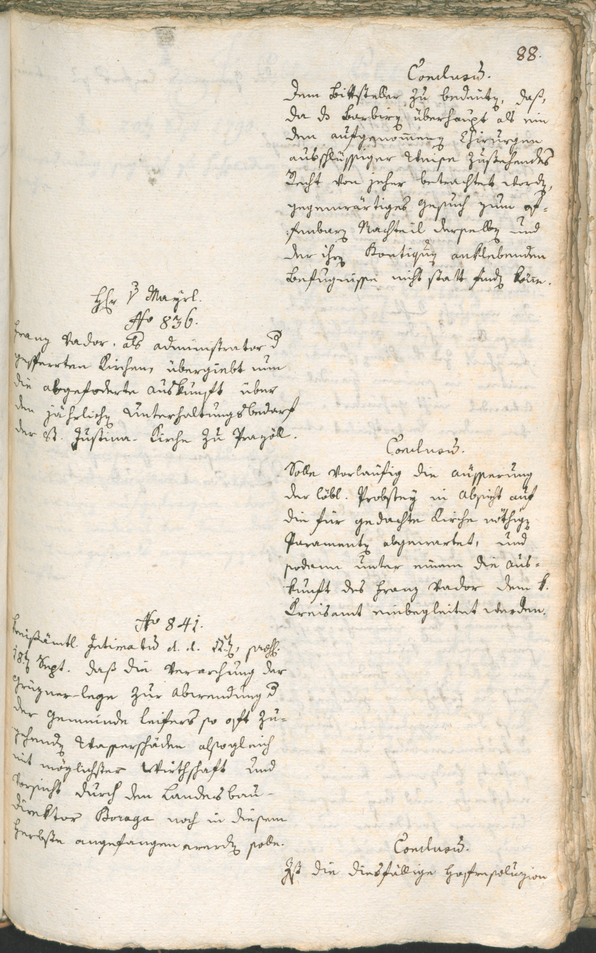 88.
Conclusum.
dem Bittsteller zu bedeuten, daß,
da das Barbiren überhaupt als ein
den aufgenommenen Chirurgen
ausschlüssiger Weise zustehendes
Recht von jeher betrachtet worden,
gegenwärtiges Gesuch zum of-
fenbaren Nachteil derselben und
der ihren anklebenden
Befugnissen nicht statt finden könne.
Hr v Mayrl.
No 836.
Franz Vador, als administrator der
gesperrten Kirchen, übergiebt nun
die abgeforderte Auskunft über
den jährlichen Unterhaltungsbedarf
der St. Justina Kirche zu Prazöll.
Conclusum.
Solle vorläufig die äusserung
der löbl. Probstey in Absicht auf
die für gedachte Kirche nöthigen
Paramenten abgewartet, und
sodann unter einem die Aus-
kunft des Franz Vador dem k.
Kreisamt einbegleitet werden.
No 841.
Kreisämtl. Intimatum d. d.
18ten Sept. daß die Verarchung der
zur Abwendung der
der Gemeinde Leifers so oft zu-
gehenden Wasserschäden alsogleich
mit möglichster Wirthschaft und
Vorsicht durch den Landesbau-
direktor Baraga noch in diesem
Herbste angefangen werden solle.
Conclusum.
Ist die diesfällige Hofresoluzion